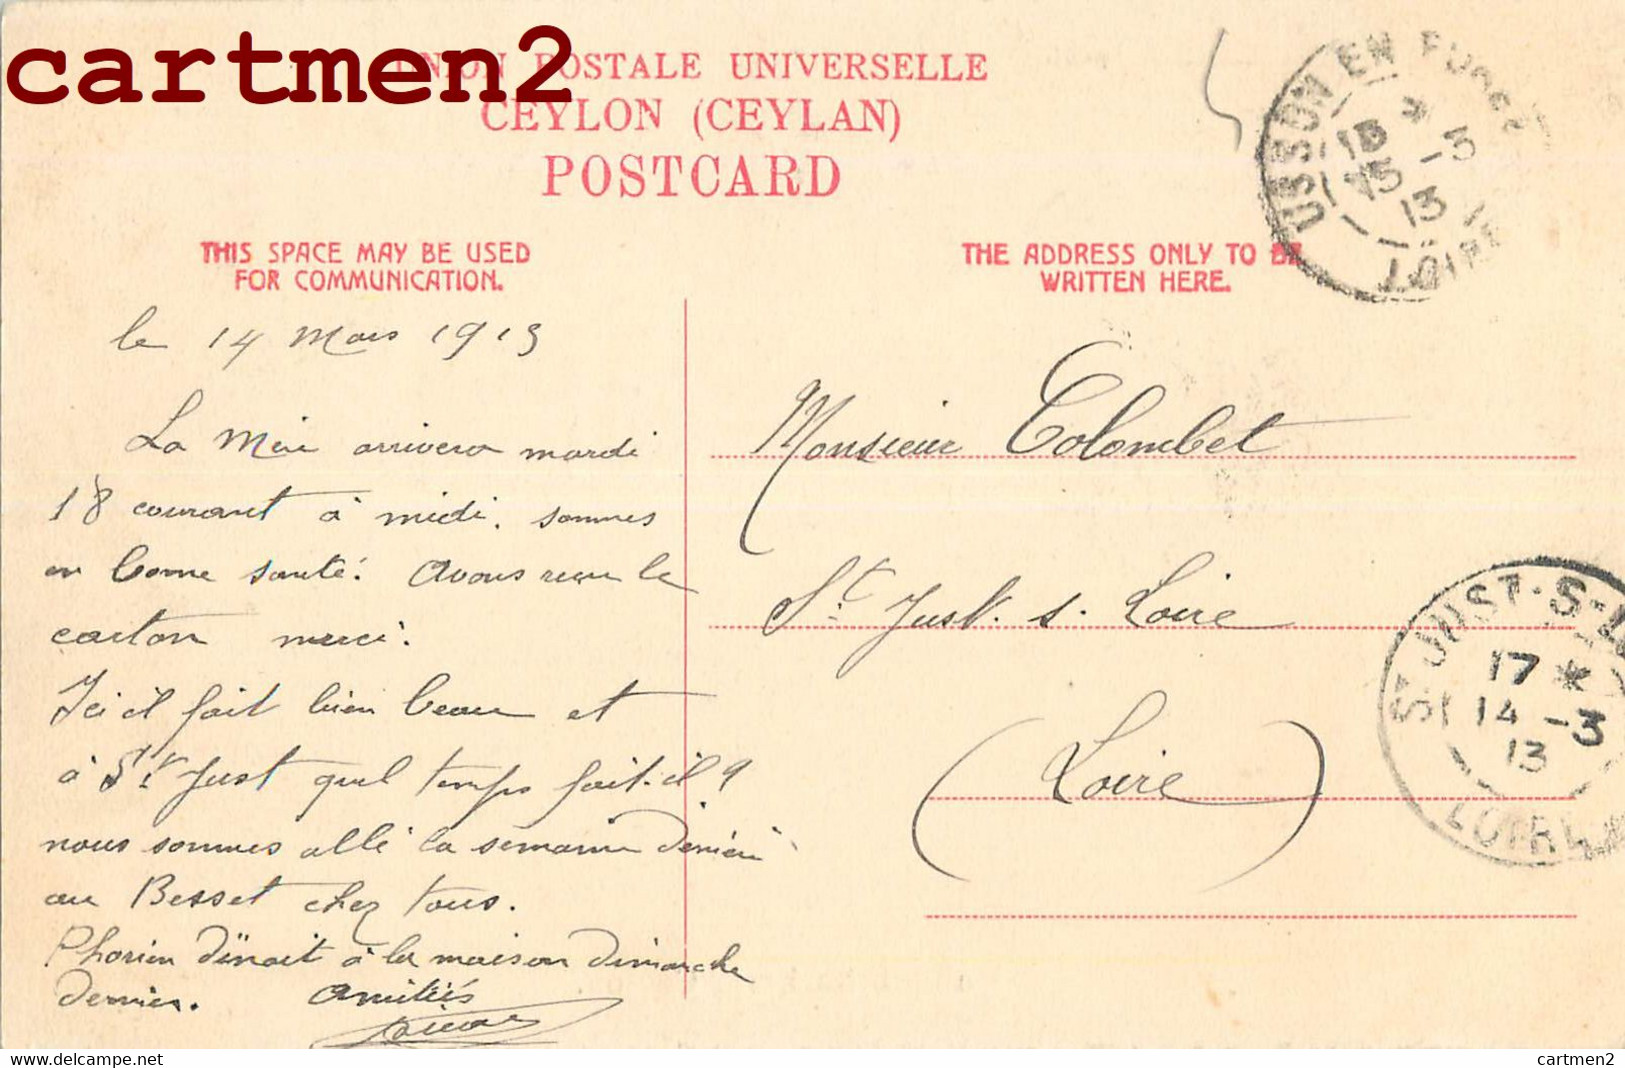 cartmen2
UNION POSTALE UNIVERSELLE
CEYLON (CEYLAN)
POSTCARD
THIS SPACE MAY BE USED
FOR COMMUNICATION.
THE ADDRESS ONLY TO BE
WRITTEN HERE.
USSON EN FOREZ
13 *
15 -3
13
LOIRE
le 14 Mars 1913
La Mère arrivera mardi
18 courant à midi. sommes
en bonne santé. Avons reçu le
carton merci.
Ici il fait bien beau et
à St Just quel temps fait-il ?
nous sommes allé la semaine dernière
au Besset chez tous.
dinait à la maison Dimanche
dernier. Amitiés
Monsieur Colombet
St. Just. s. Loire
(Loire)
ST JUST-S-L
17 *
14 -3
13
LOIRE
delcampe.net
cartmen2